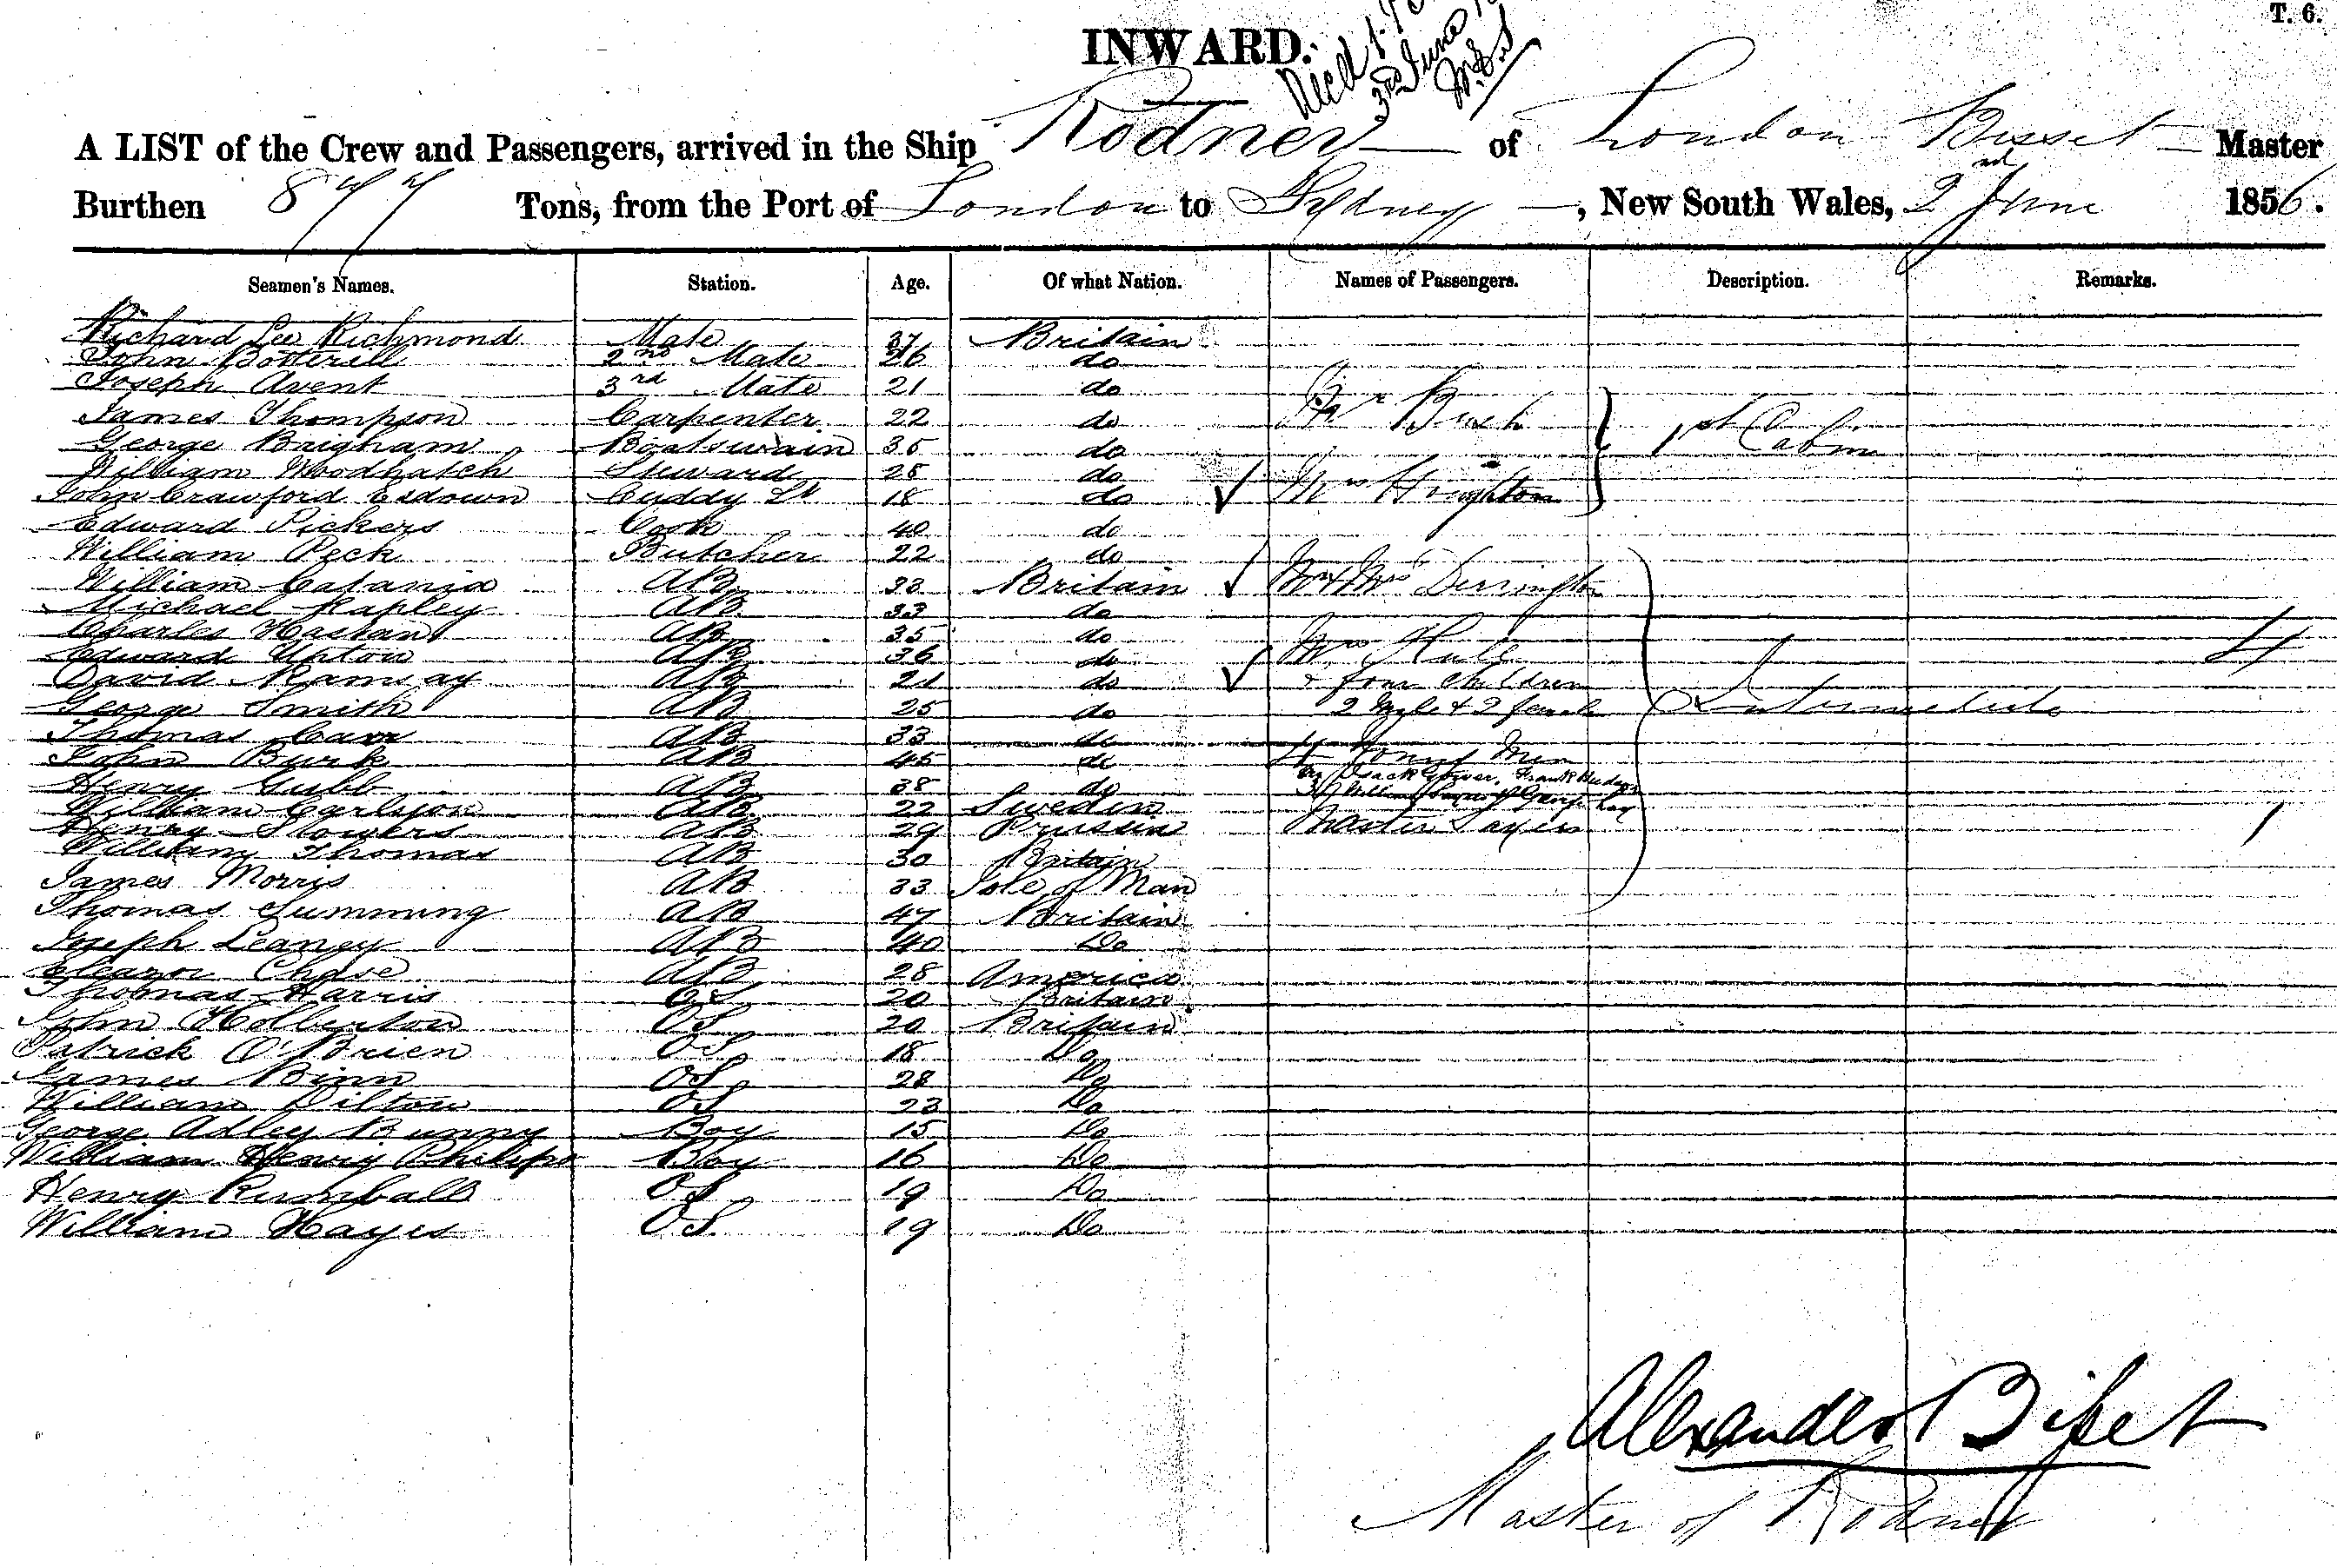 T. 6.
INWARD.
3rd June
A LIST of the Crew and Passengers, arrived in the Ship Rodney of London Bisset Master
Burthen 877 Tons, from the Port of London to Sydney, New South Wales, 2nd June 1856.
Seamen's Names. Station. Age. Of what Nation. Names of Passengers. Description. Remarks.
Richard Lee Richmond Mate 37 Britain
John Botterill 2nd Mate 26 do
Joseph Avent 3rd Mate 21 do
James Thompson Carpenter 22 do Mr Bush 1st Cabin
George Brigham Boatswain 35 do
William Woodhatch Steward 25 do
John Crawford Esdown Cuddy St 18 do Mrs
Edward Pickers Cook 40 do
William Peck Butcher 22 do
William Catania AB 33 Britain Mr & Mrs Derrington
Michael Rapley AB 33 do
Charles AB 35 do
Edward Upton AB 36 do Mrs 4
David Ramsay AB 21 do & four children
George Smith AB 25 do 2 Male & 2 female Intermediate
Thomas Carr AB 33 do
John Burk AB 45 do 4 Men
Henry Gubb AB 38 do
William Carlyon AB 22 Sweden
Henry Stowers AB 29 Prussia Master Sayers 1
William Thomas AB 30 Britain
James Morris AB 33 Isle of Man
Thomas AB 47 Britain
Joseph Leaney AB 40 Do
Eleazor Chase AB 28 America
Thomas Harris OS 20 Britain
John Hollerton OS 20 Britain
Patrick O'Brien OS 18 Do
James Binn OS 28 Do
William Dilton OS 23 Do
George Adley Bunny Boy 15 Do
William Henry Philips Boy 16 Do
Henry Rumball OS 19 Do
William Hayes OS. 19 Do
Alexander Bisset
Master of Rodney